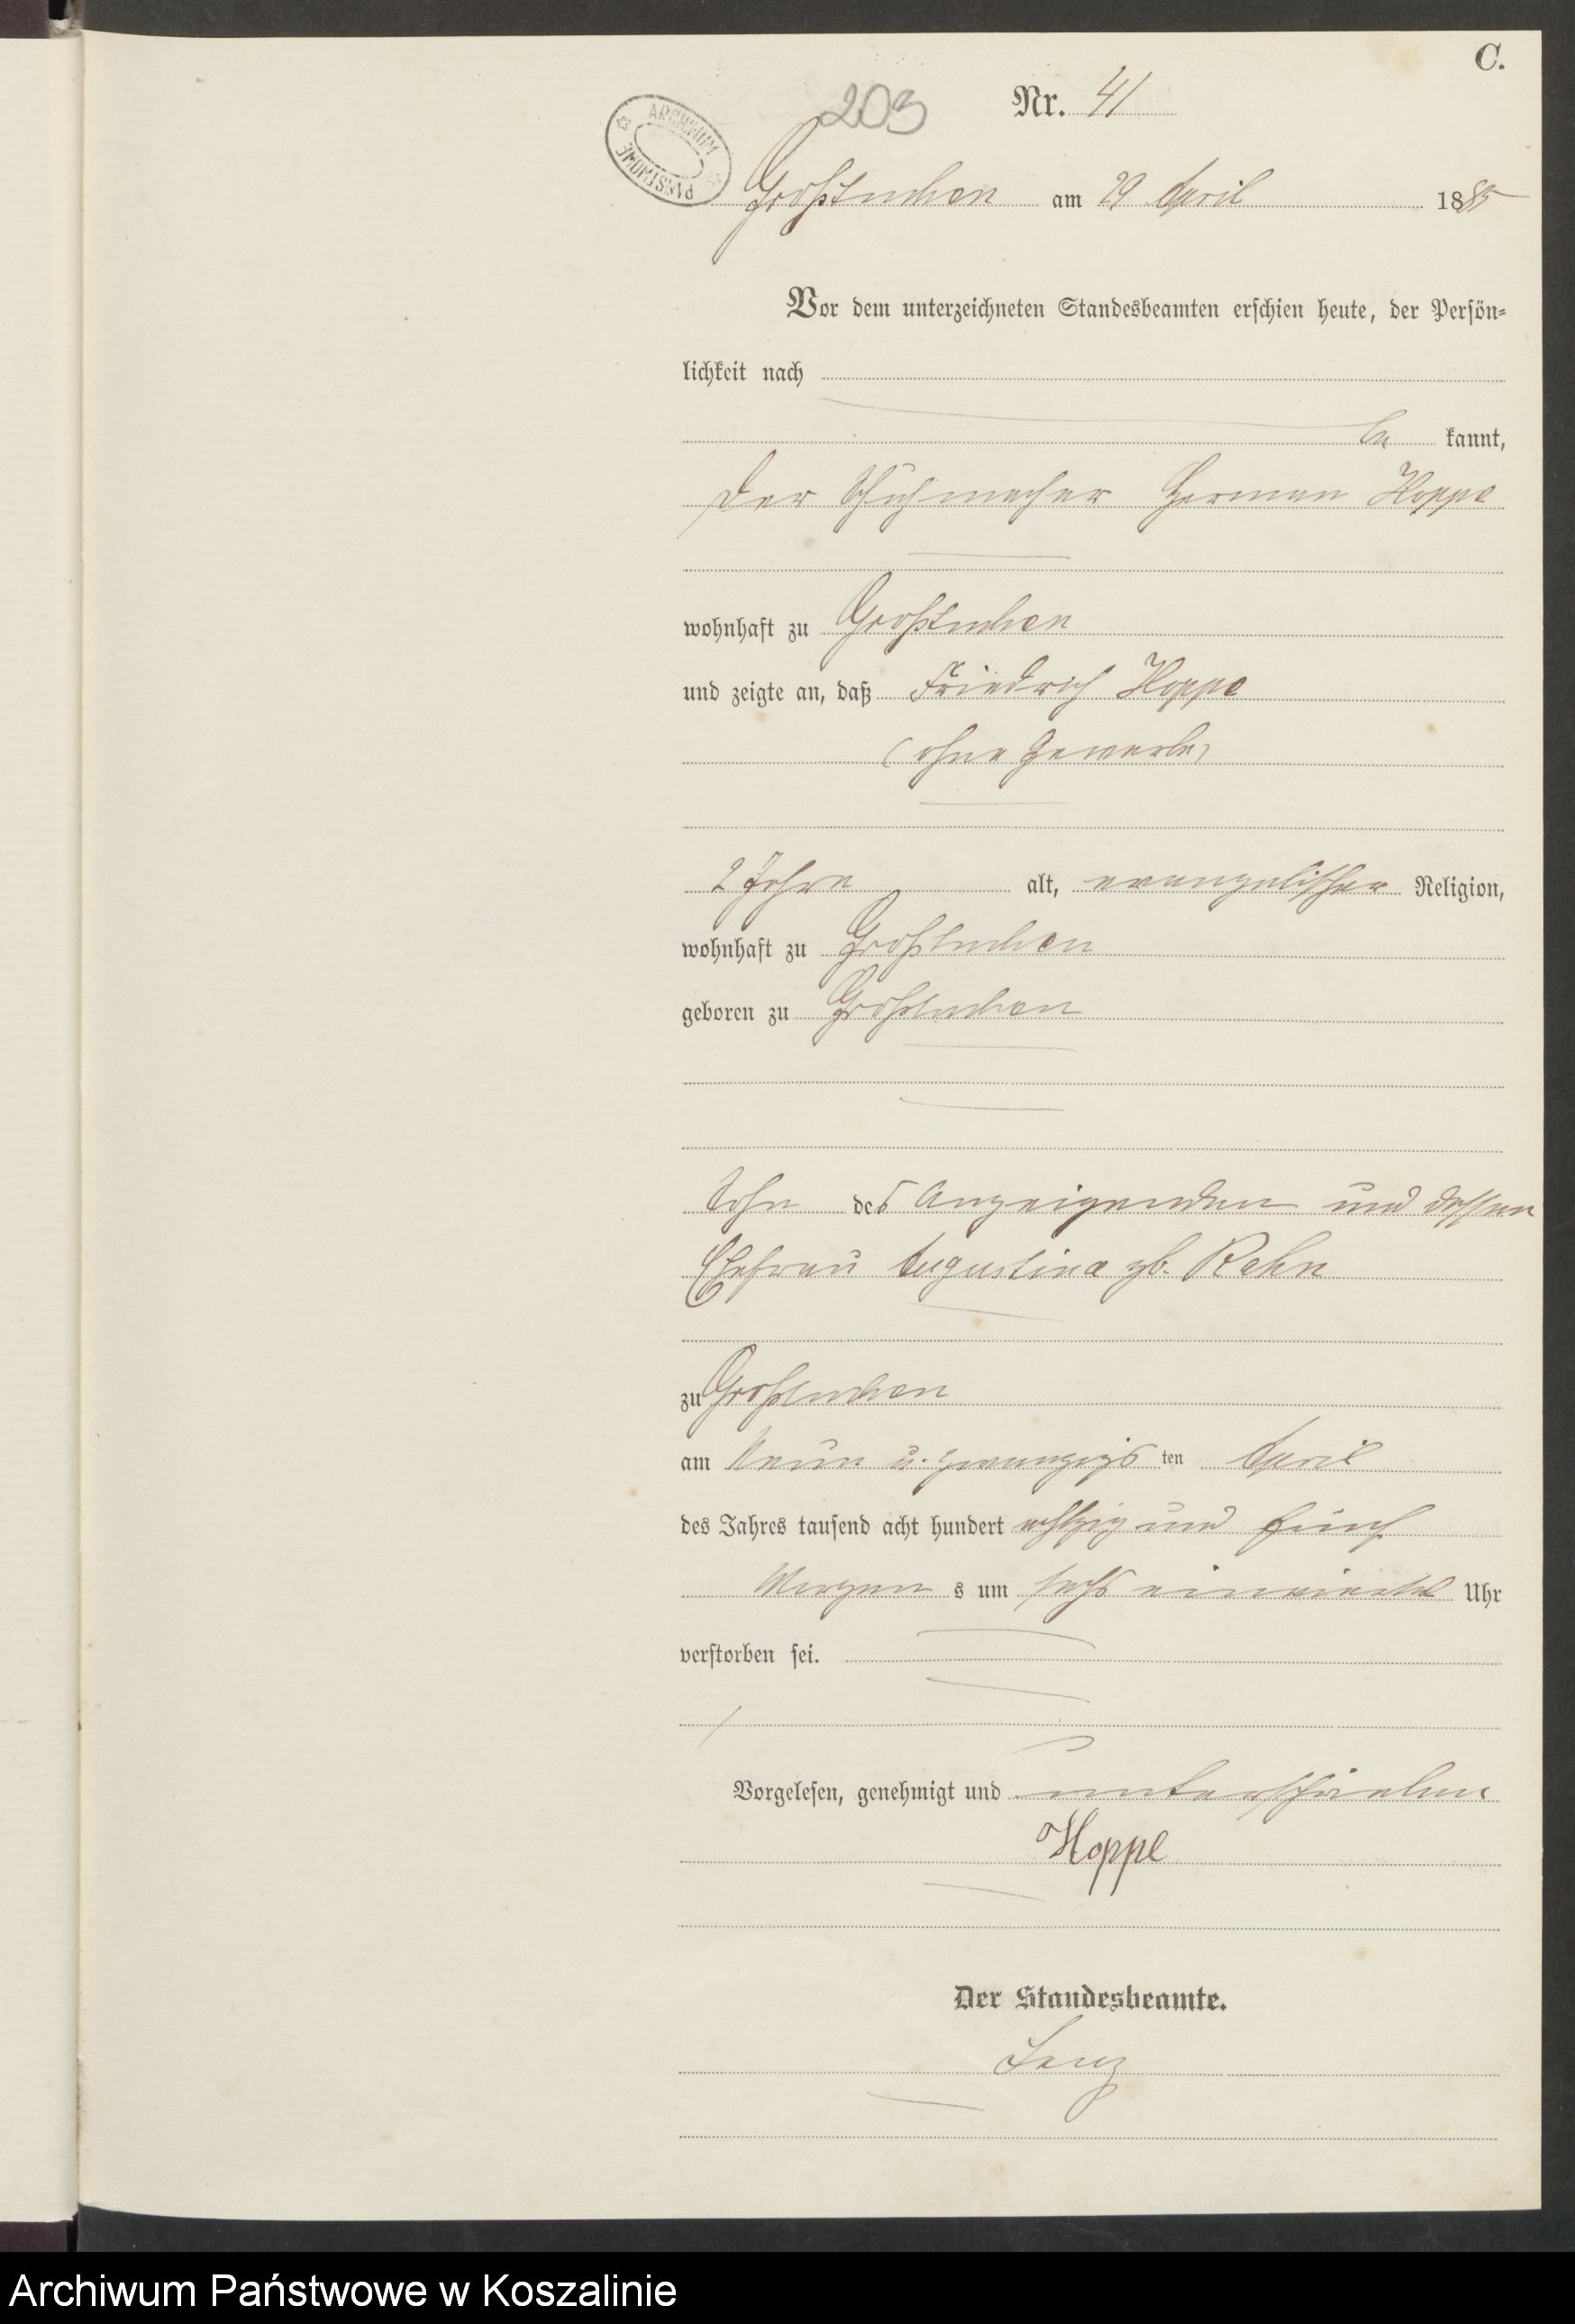 C.
203
Nr. 41
ARCHIWUM PAŃSTWOWE
Großtuchen am 29 April 1885
Vor dem unterzeichneten Standesbeamten erschien heute, der Persön-
lichkeit nach
be kannt,
der Schuhmacher Herman Hoppe
wohnhaft zu Großtuchen
und zeigte an, daß Friedrich Hoppe
(ohne Gewerbe)
2 Jahre alt, evangelischer Religion,
wohnhaft zu Großtuchen
geboren zu Großtuchen
Sohn des Anzeigenden und dessen
Ehefrau Augustine gb. Rahn
zu Großtuchen
am Neun u. zwanzigs ten April
des Jahres tausend acht hundert achtzig und fünf
Morgen s um sechs einviertel Uhr
verstorben sei.
Vorgelesen, genehmigt und unterschrieben
Hoppe
Der Standesbeamte.
Lenz
Archiwum Państwowe w Koszalinie